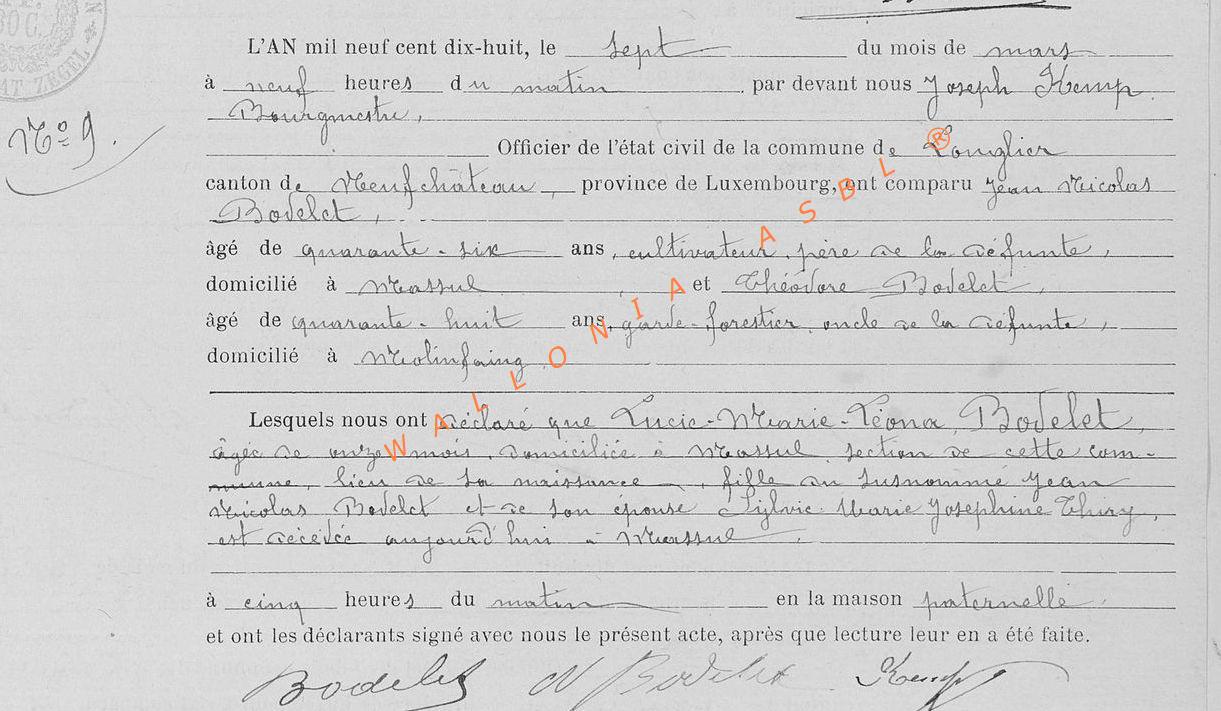 L'AN mil neuf cent dix-huit, le sept du mois de mars
à neuf heures du matin par devant nous Joseph Kemp
Bourgmestre,
No 9.
Officier de l'état civil de la commune de Longlier
canton de Neufchâteau, province de Luxembourg, ont comparu Jean Nicolas
Bodelet,
âgé de quarante-six ans, cultivateur, père de la défunte,
domicilié à Massul et Théodore Bodelet,
âgé de quarante-huit ans, garde-forestier, oncle de la défunte,
domicilié à Molinfaing
Lesquels nous ont déclaré que Lucie-Marie-Léona Bodelet,
âgée de onze mois, domiciliée à Massul section de cette com-
mune, lieu de sa naissance, fille du susnommé Jean
Nicolas Bodelet et de son épouse Sylvie Marie Josephine Thiry,
est décédée aujourd'hui à Massul.
à cinq heures du matin en la maison paternelle.
et ont les déclarants signé avec nous le présent acte, après que lecture leur en a été faite.
Bodelet N Bodelet Kemp
WALLONIA ASBL ®
ZEGEL